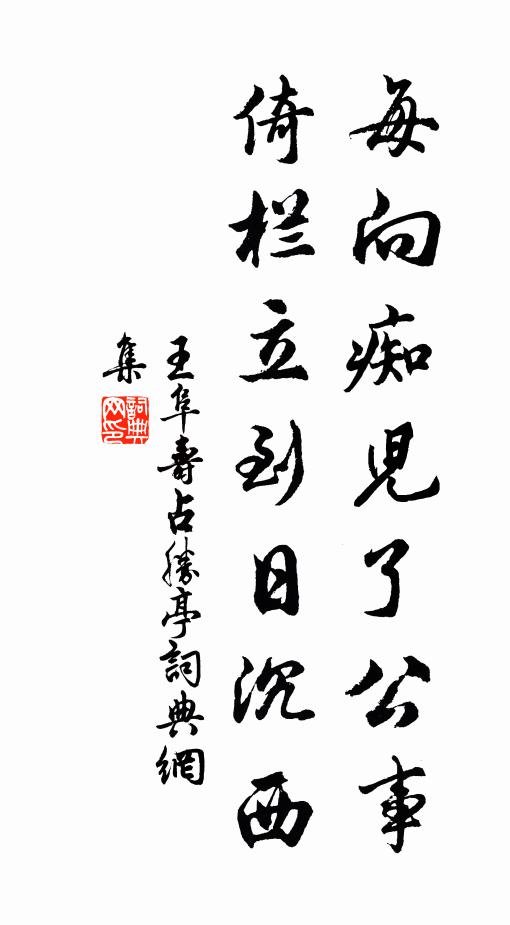 每向痴児了公事
倚栏立到日沉西
王阜壽占勝亭詞典網
集
詞典
网印